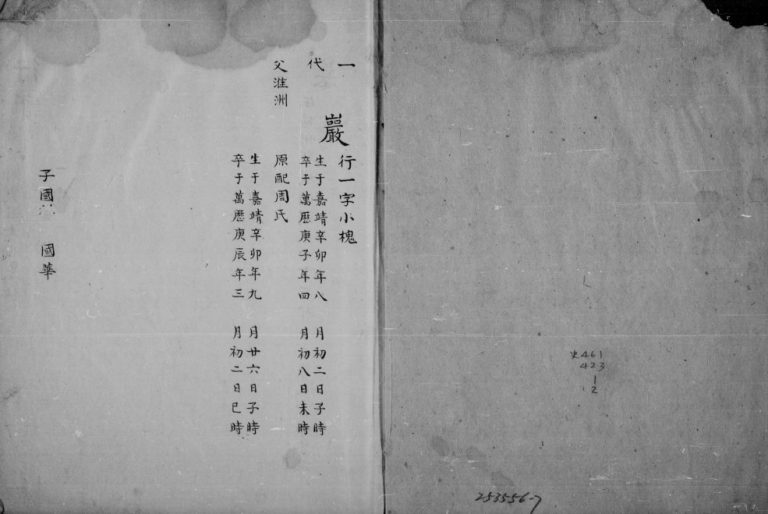 一代
父淮洲
巖 行一字小槐
生于嘉靖辛卯年八月初二日子時
卒于萬歷庚子年四月初八日未時
原配周氏
生于嘉靖辛卯年九月廿六日子時
卒于萬歷庚辰年三月初二日巳時
子國 國華
史461
423
1
2
253556-7